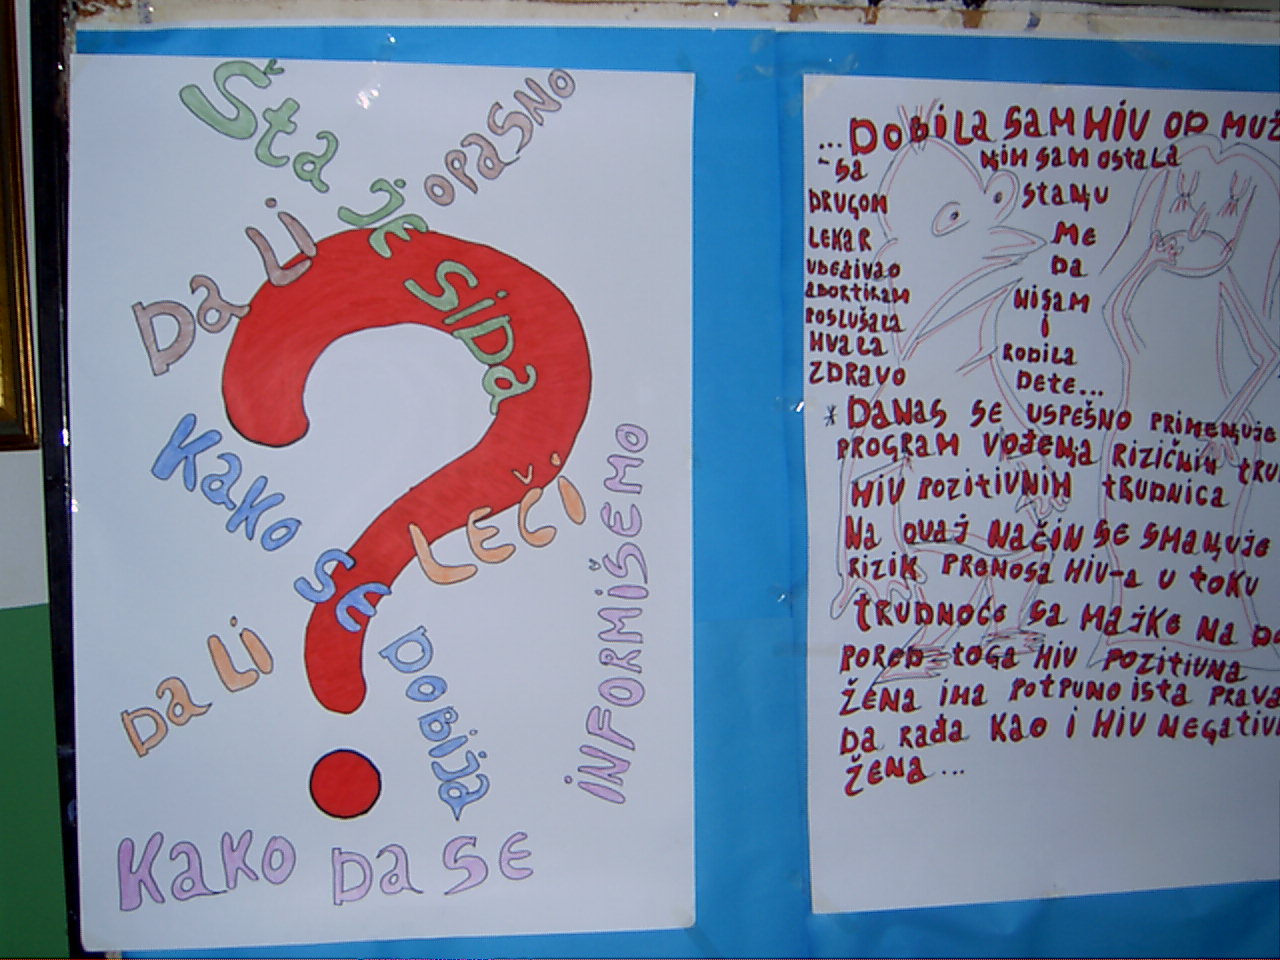 Šta je SIDA
Da Li OPASNO
Kako SE DOBIJA
Da Li LEČI
Kako Da SE INFORMIŠEMO
...DOBILA SAM HIV OD MUŽ
-Sa NJIM SAM OSTALA
DRUGOM STANJU
LEKAR ME
UBEĐIVAO DA
ABORTIRAM NISAM
POSLUŠALA I
HVALA RODILA
ZDRAVO DETE...
* DANAS SE USPEŠNO PRIMENJUJE
PROGRAM VOĐENJA RIZIČNIH TRU
HIV POZITIVNIH TRUDNICA
NA OVAJ NAČIN SE SMANJUJE
RIZIK PRENOSA HIV-A U TOKU
TRUDNOĆE SA MAJKE NA D
PORED TOGA HIV POZITIVNA
ŽENA IMA POTPUNO ISTA PRAVA
DA RAĐA KAO I HIV NEGATIV
ŽENA...